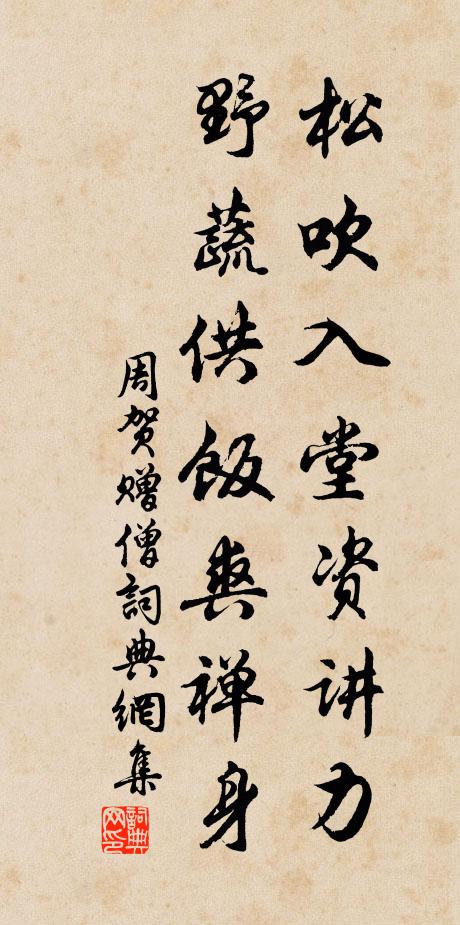 松吹入堂资讲力
野蔬供飯爽禅身
周贺赠僧詞典網集
詞典网印